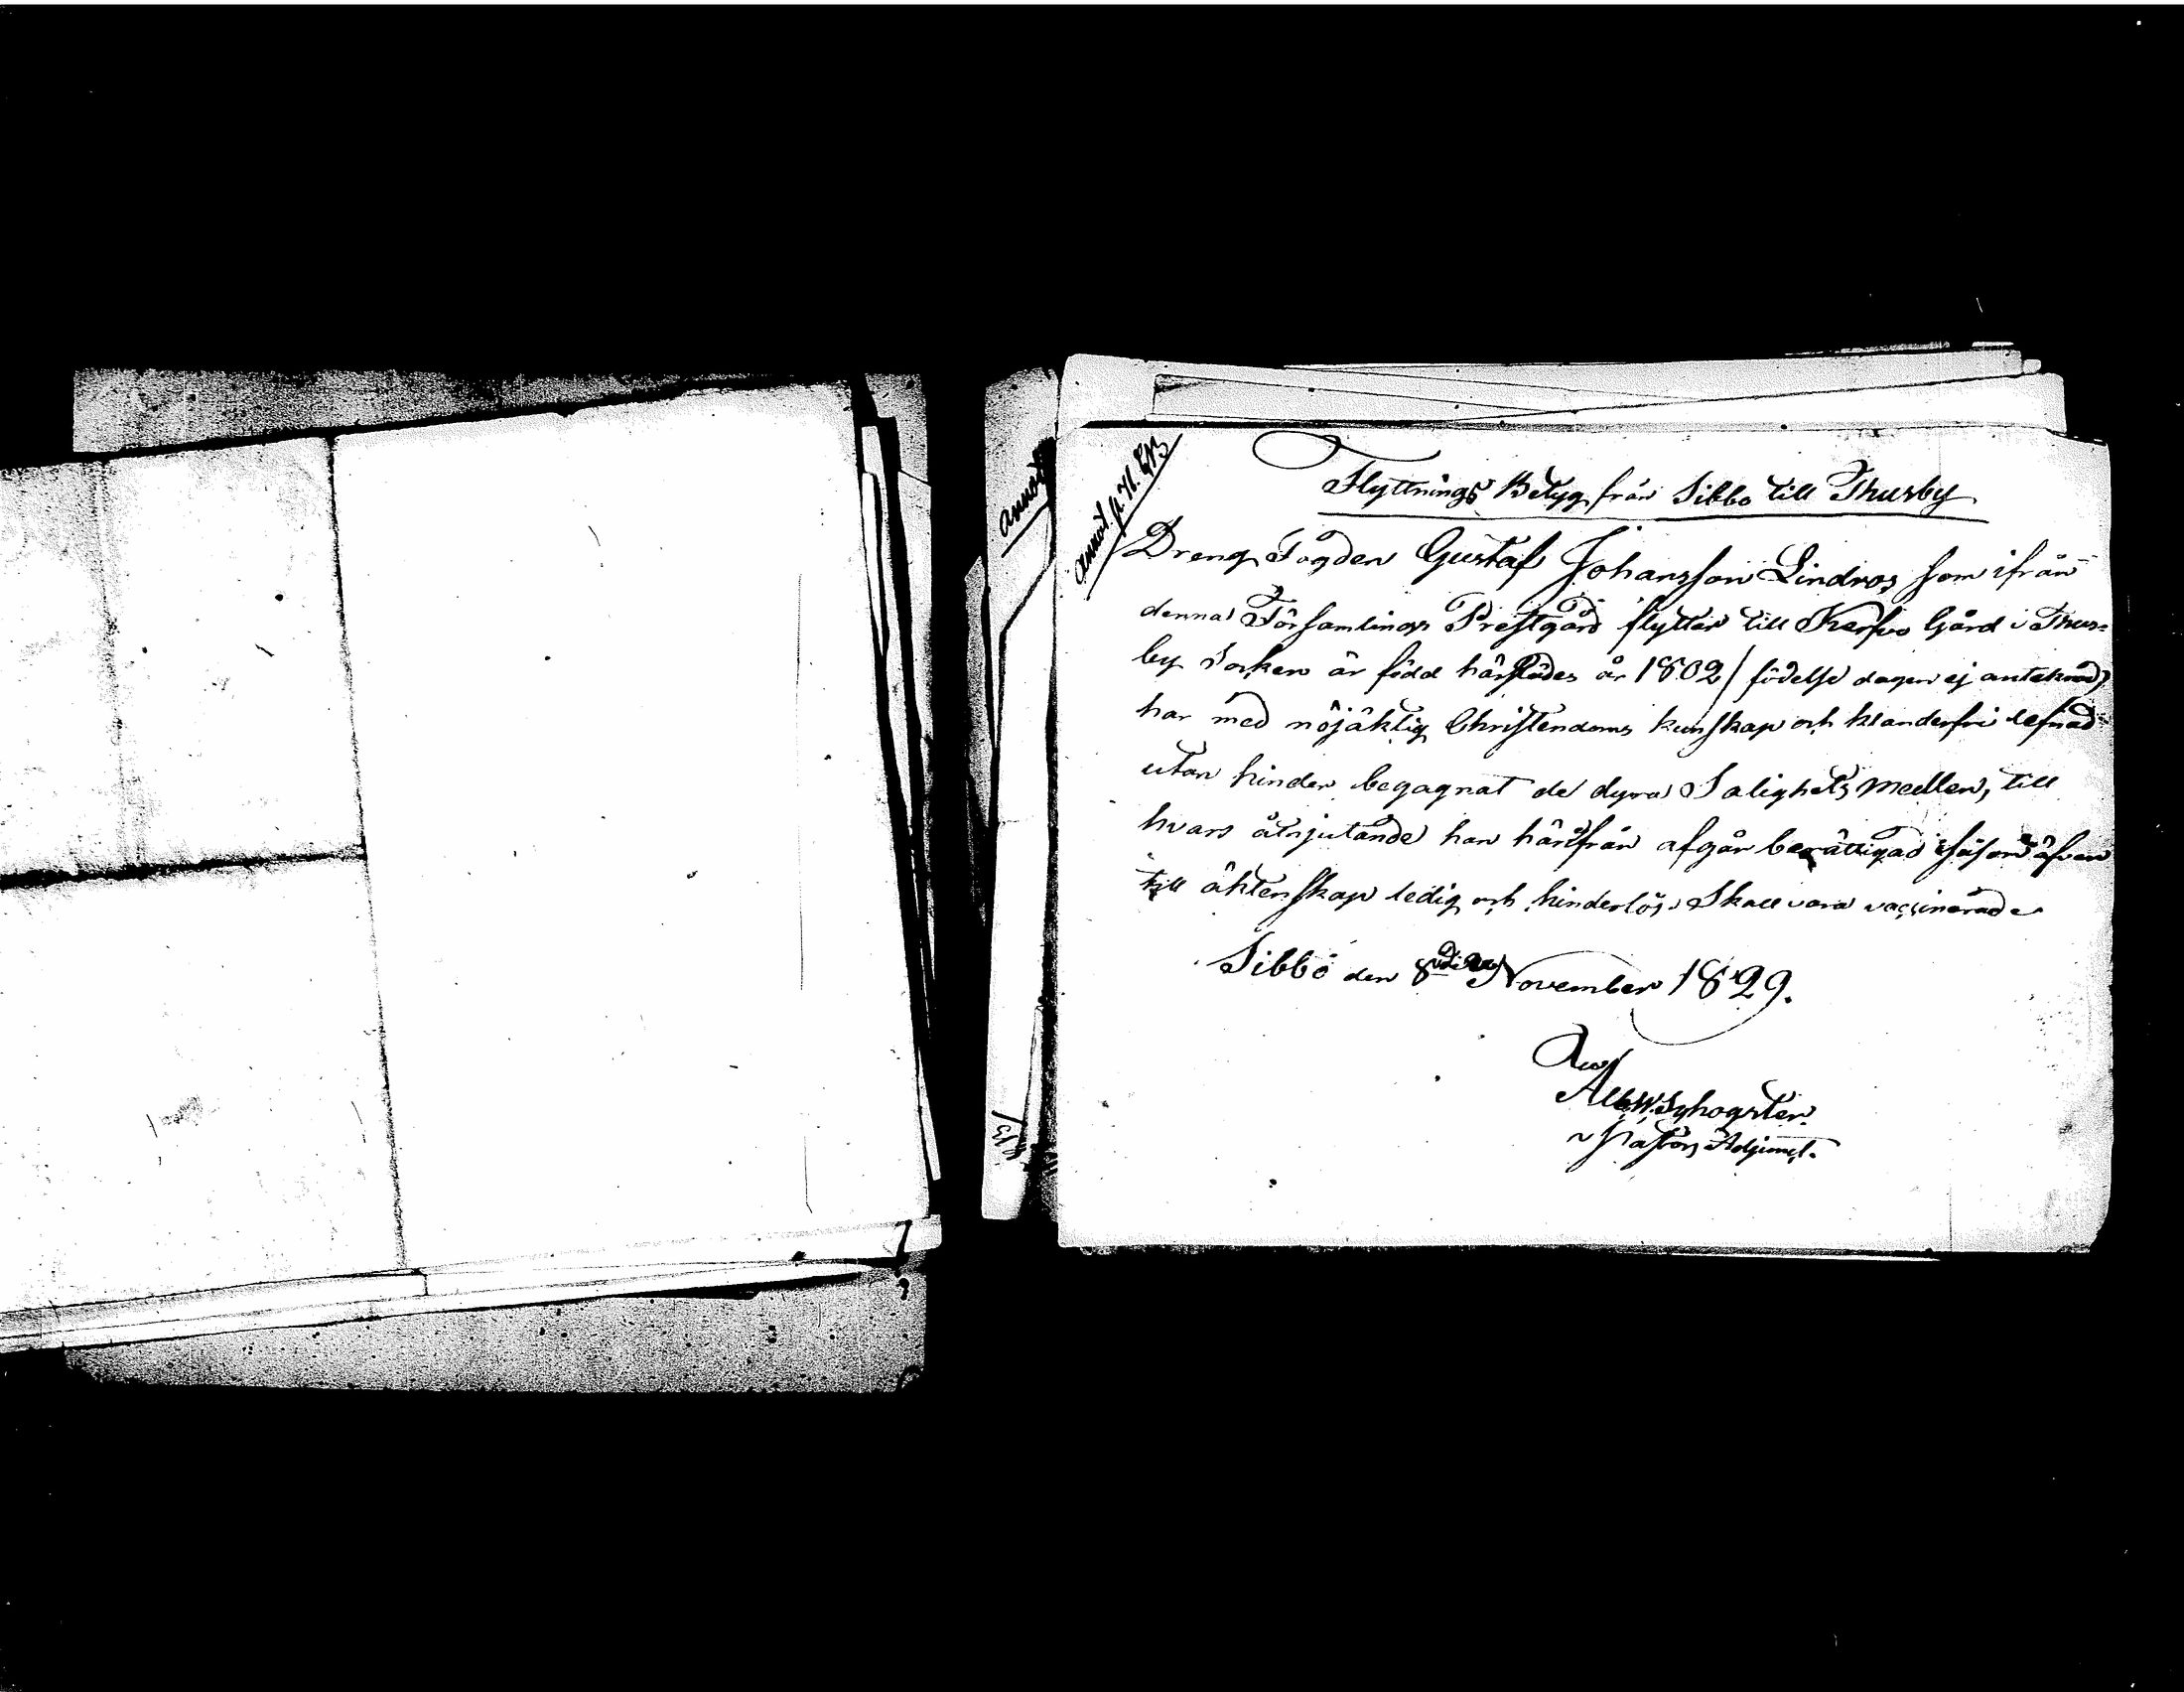 annot.
annot. p. 71.
Flyttnings Betyg från Sibbo till Thusby
Dreng Fogden Gustaf Johansson Lindros som ifrån
denna Församlings Prestgård flyttar till Kerfvo Gård i Thus=
by Socken är född härstädes år 1802 / födelse dagen ej anteknad /
har med nöjaktig Christendoms kunskap och klanderfri lefnad
utan hinder begagnat de dyra Salighets medlen, till
hvars åtnjutande han härifrån afgår berättigad såsom äfven
till äktenskap ledig och hinderlös. Skall vara vaccinerad.
Sibbo den 8 November 1829.
Pastors Adjunct.